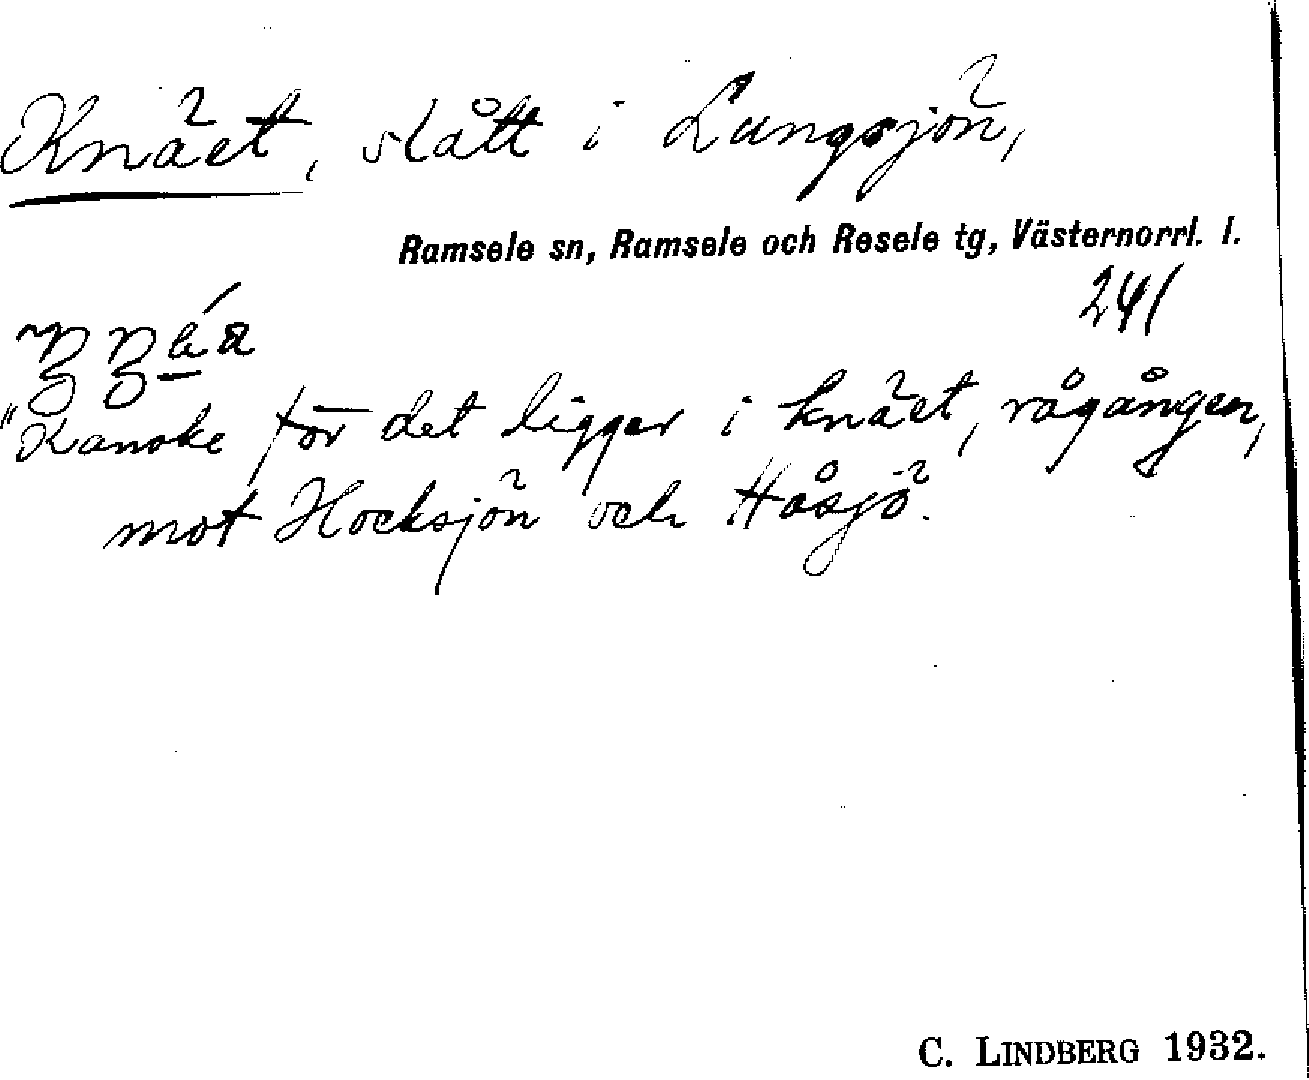 Knäet, slått i Lungsjön,
Ramsele sn, Ramsele och Resele tg, Västernorrl. l.
241
"Kanske för det ligger i knäet, rågången,
mot Hocksjön och Håsjö.
C. LINDBERG 1932.